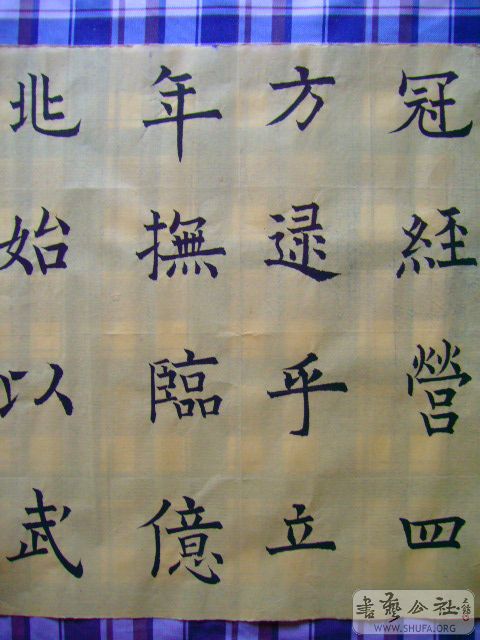 冠經營四
方逮乎立
年撫臨億
兆始以武
書藝公社
WWW.SHUFA.ORG